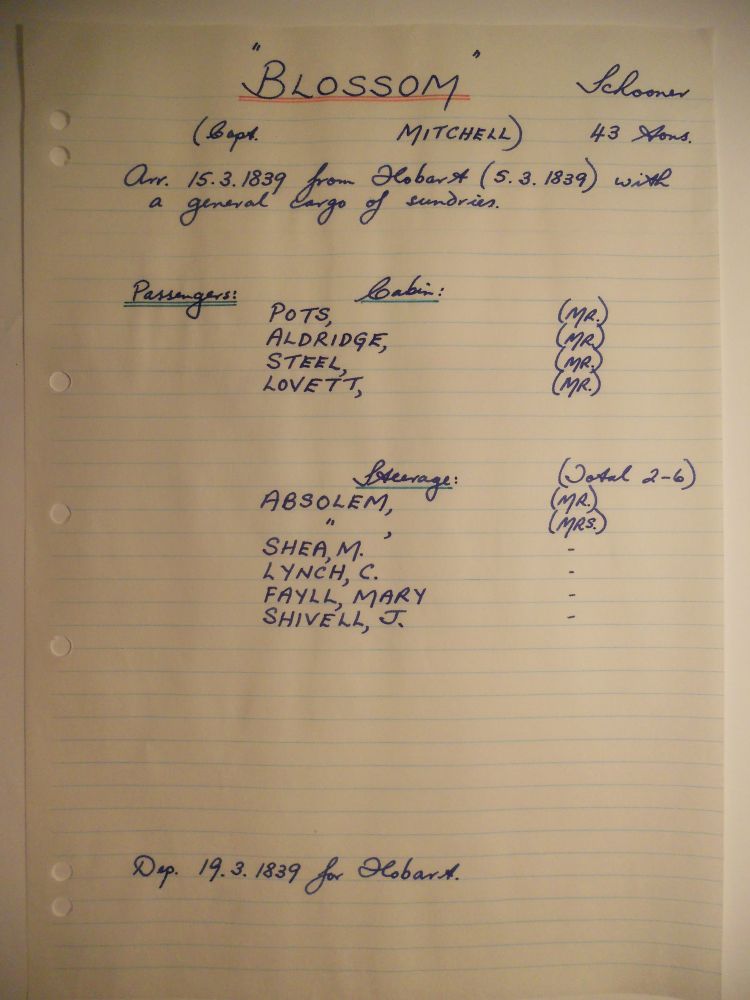 "BLOSSOM" Schooner
(Capt. MITCHELL) 43 tons.
Arr. 15.3.1839 from Hobart (5.3.1839) with
a general cargo of sundries.
Passengers: Cabin:
POTS, (MR.)
ALDRIDGE, (MR.)
STEEL, (MR.)
LOVETT, (MR.)
Steerage: (Total 2-6)
ABSOLEM, (MR.)
" , (MRS.)
SHEA, M. -
LYNCH, C. -
FAYLL, MARY -
SHIVELL, J. -
Dep. 19.3.1839 for Hobart.